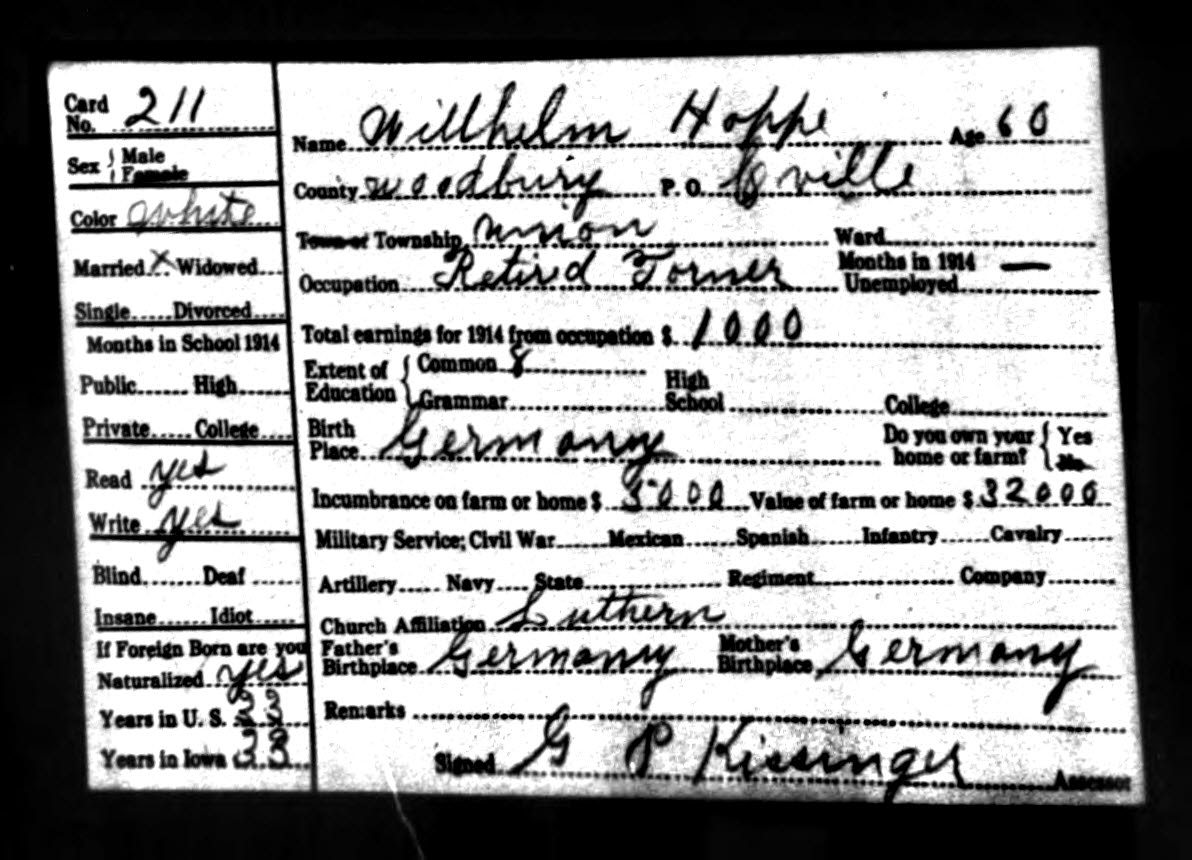 Card No. 211
Sex { Male
Female
Color White
Married X Widowed
Single Divorced
Months in School 1914
Public High
Private College
Read yes
Write yes
Blind Deaf
Insane Idiot
If Foreign Born are you
Naturalized yes
Years in U. S. 33
Years in Iowa 33
Name Willhelm Hoppe Age 60
County Woodbury P. O. Oville
Town or Township Union Ward
Occupation Retird Formér Months in 1914 Unemployed —
Total earnings for 1914 from occupation $ 1000
Extent of Education { Common 8
Grammar High School College
Birth Place Germany Do you own your home or farm? { Yes
No
Incumbrance on farm or home $ 5000 Value of farm or home $ 32000
Military Service; Civil War Mexican Spanish Infantry Cavalry
Artillery Navy State Regiment Company
Church Affiliation Luthern
Father's Birthplace Germany Mother's Birthplace Germany
Remarks
Signed G P Kissinger Assessor